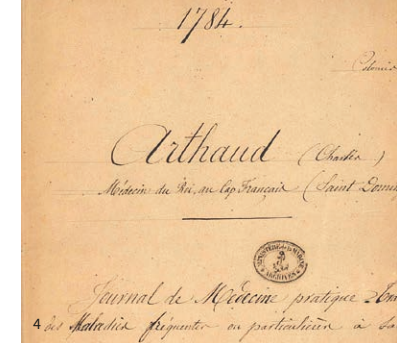 1784.
Colonies
Arthaud (Charles)
Médecin du Roi, au Cap Français (Saint Domin
MINISTÈRE DE LA MARINE
ARCHIVES
Journal de Médecine pratique
4 des Maladies fréquentes ou particulières à